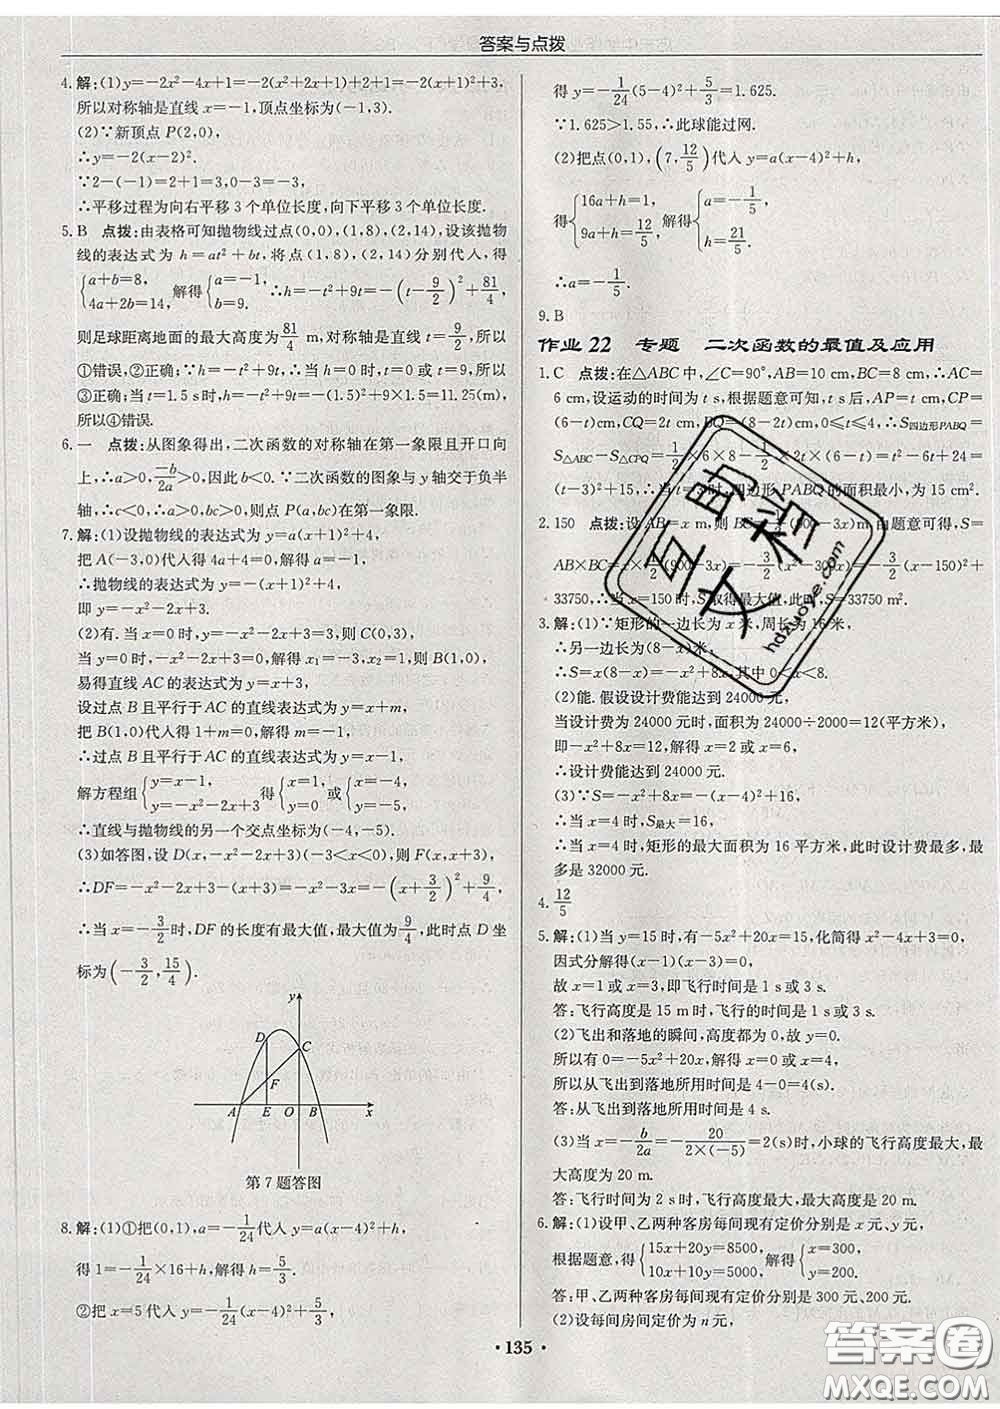 答案与点拨
4.解:(1)y=-2x²-4x+1=-2(x²+2x+1)+2+1=-2(x+1)²+3,
所以对称轴是直线 x=-1,顶点坐标为(-1,3).
(2)∵新顶点 P(2,0),
∴y=-2(x-2)².
∵2-(-1)=2+1=3,0-3=-3,
∴平移过程为向右平移 3 个单位长度,向下平移 3 个单位长度.
5.B 点拨:由表格可知抛物线过点(0,0),(1,8),(2,14),设该抛物
线的表达式为 h=at²+bt,将点(1,8),(2,14)分别代入,得
{a+b=8, 4a+2b=14, 解得{a=-1, b=9. ∴h=-t²+9t=-(t-9/2)²+81/4,
则足球距离地面的最大高度为81/4 m,对称轴是直线 t=9/2,所以
①错误,②正确;∵h=-t²+9t,∴当 h=0 时,t=0 或 t=9,所以
③正确;当 t=1.5 s时,h=-t²+9t=-(1.5)²+9×1.5=11.25(m),
所以④错误.
6.一 点拨:从图象得出,二次函数的对称轴在第一象限且开口向
上,∴a>0,-b/2a>0,因此 b<0.∵二次函数的图象与 y 轴交于负半
轴,∴c<0,∴a>0,bc>0,则点 P(a,bc)在第一象限.
7.解:(1)设抛物线的表达式为 y=a(x+1)²+4,
把 A(-3,0)代入得 4a+4=0,解得 a=-1.
∴抛物线的表达式为 y=-(x+1)²+4,
即 y=-x²-2x+3.
(2)有.当 x=0时,y=-x²-2x+3=3,则 C(0,3),
当 y=0时,-x²-2x+3=0,解得 x₁=-3,x₂=1,则 B(1,0),
易得直线 AC 的表达式为 y=x+3,
设过点 B 且平行于 AC 的直线表达式为 y=x+m,
把 B(1,0)代入得 1+m=0,解得 m=-1,
∴过点 B 且平行于 AC 的直线表达式为 y=x-1,
解方程组{y=x-1, y=-x²-2x+3 得{x=1, y=0 或{x=-4, y=-5.
∴直线与抛物线的另一个交点坐标为(-4,-5).
(3)如答图,设 D(x,-x²-2x+3)(-3<x<0),则 F(x,x+3),
∴DF=-x²-2x+3-(x+3)=-x²-3x=-(x+3/2)²+9/4,
∴当 x=-3/2时,DF 的长度有最大值,最大值为9/4,此时点 D 坐
标为(-3/2,15/4).
y
D
C
F
A E O B x
第 7 题答图
8.解:(1)①把(0,1),a=-1/24代入 y=a(x-4)²+h,
得 1=-1/24×16+h,解得 h=5/3.
②把 x=5 代入 y=-1/24(x-4)²+5/3,
得 y=-1/24(5-4)²+5/3=1.625.
∵1.625>1.55,∴此球能过网.
(2)把点(0,1),(7,12/5)代入 y=a(x-4)²+h,
得{16a+h=1, 9a+h=12/5, 解得{a=-1/5, h=21/5.
∴a=-1/5.
9.B
作业 22 专题 二次函数的最值及应用
1.C 点拨:在△ABC中,∠C=90°,AB=10 cm,BC=8 cm,∴AC=
6 cm,设运动的时间为 t s,根据题意可知,t s后,AP=t cm,CP=
(6-t)cm,CQ=2t cm,BQ=(8-2t)cm,0≤t≤4,∴S四边形PABQ=
S△ABC-S△CPQ=1/2×6×8-1/2×2t×(6-t)=t²-6t+24=
(t-3)²+15,∴当 t=3时,四边形 PABQ的面积最小,为 15 cm².
2.150 点拨:设 AB=x m,则 BC=1/2(900-3x)m,由题意可得,S=
AB×BC=x×1/2(900-3x)=-3/2(x²-300x)=-3/2(x-150)²+
33750.∴当 x=150时,S取得最大值,此时,S=33750 m².
3.解:(1)∵矩形的一边长为 x 米,周长为 16 米,
∴另一边长为(8-x)米,
∴S=x(8-x)=-x²+8x,其中 0<x<8.
(2)能.假设设计费能达到 24000 元,
当设计费为 24000 元时,面积为 24000÷2000=12(平方米),
即-x²+8x=12,解得 x=2 或 x=6,
∴设计费能达到 24000 元.
(3)∵S=-x²+8x=-(x-4)²+16,
∴当 x=4时,S最大=16,
∴当 x=4时,矩形的最大面积为 16 平方米,此时设计费最多,最
多是 32000 元.
4.12/5
5.解:(1)当 y=15时,有-5x²+20x=15,化简得 x²-4x+3=0,
因式分解得(x-1)(x-3)=0,
故 x=1 或 x=3,即飞行时间是 1 s或 3 s.
答:飞行高度是 15 m时,飞行的时间是 1 s或 3 s.
(2)飞出和落地的瞬间,高度都为 0,故 y=0.
所以有 0=-5x²+20x,解得 x=0 或 x=4,
所以从飞出到落地所用时间是 4-0=4(s).
答:从飞出到落地所用时间是 4 s.
(3)当 x=-b/2a=-20/2×(-5)=2(s)时,小球的飞行高度最大,最
大高度为 20 m.
答:飞行时间为 2 s时,飞行高度最大,最大高度是 20 m.
6.解:(1)设甲、乙两种客房每间现有定价分别是 x 元、y 元,
根据题意,得{15x+20y=8500, 10x+10y=5000, 解得{x=300, y=200.
答:甲、乙两种客房每间现有定价分别是 300 元、200 元.
(2)设每间房间定价为 n 元,
• 135 •
互助文档
hdzuoye.com
答案卷
MXQE.COM